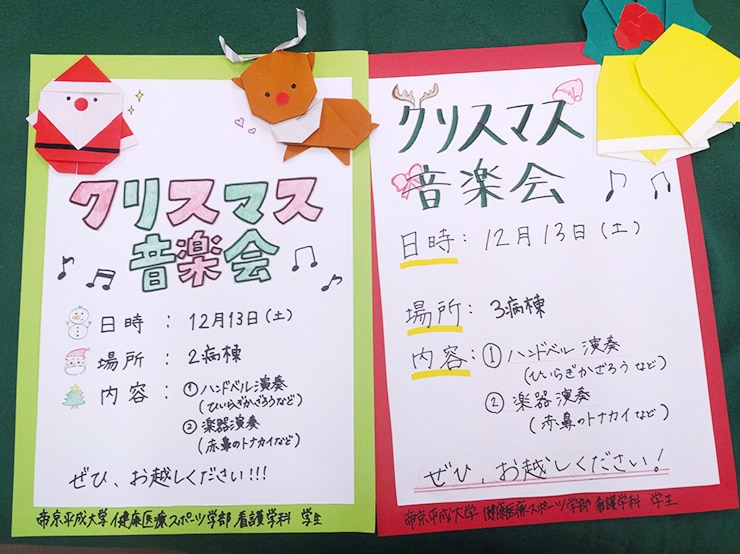 クリスマス
音楽会
日時 : 12月13日(土)
場所 : 2病棟
内容 : ①ハンドベル演奏
(ひいらぎかざろうなど)
②楽器演奏
(赤鼻のトナカイなど)
ぜひ、お越しください!!!
帝京平成大学 健康医療スポーツ学部 看護学科 学生
クリスマス
音楽会
日時: 12月13日(土)
場所: 3病棟
内容: ①ハンドベル演奏
(ひいらぎかざろうなど)
②楽器演奏
(赤鼻のトナカイなど)
ぜひ、お越しください!
帝京平成大学 健康医療スポーツ学部 看護学科 学生